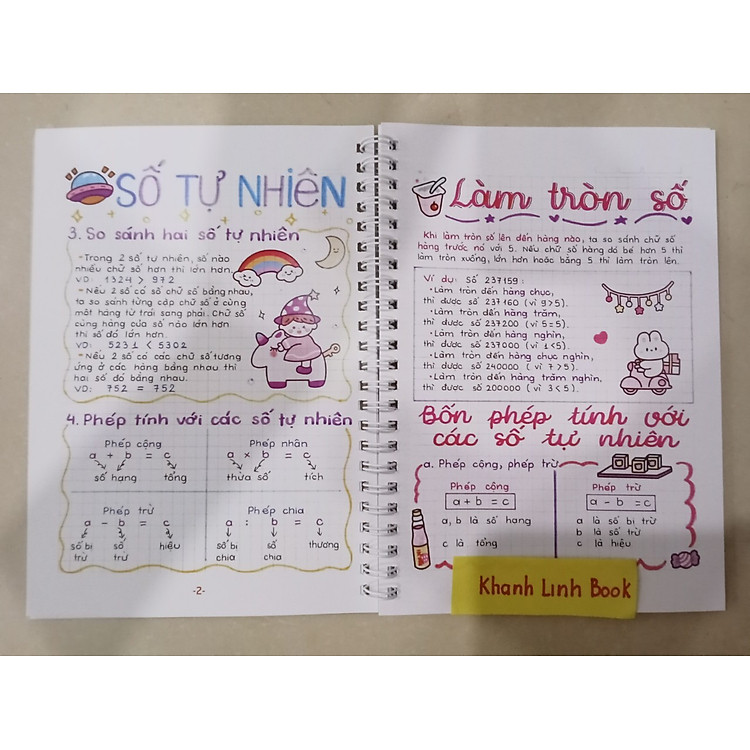 SỐ TỰ NHIÊN
3. So sánh hai số tự nhiên
- Trong 2 số tự nhiên, số nào
nhiều chữ số hơn thì lớn hơn.
VD: 1324 > 972
- Nếu 2 số có số chữ số bằng nhau,
ta so sánh từng cặp chữ số ở cùng
một hàng từ trái sang phải. Chữ số
cùng hàng của số nào lớn hơn
thì số đó lớn hơn
VD: 5231 < 5302
- Nếu 2 số có các chữ số tương
ứng ở các hàng bằng nhau thì
hai số đó bằng nhau.
VD: 752 = 752
4. Phép tính với các số tự nhiên
Phép cộng
a + b = c
số hạng tổng
Phép nhân
a × b = c
thừa số tích
Phép trừ
a - b = c
số bị số hiệu
trừ trừ
Phép chia
a : b = c
số bị số thương
chia chia
-2-
Làm tròn số
Khi làm tròn số lên đến hàng nào, ta so sánh chữ số
hàng trước nó với 5. Nếu chữ số hàng đó bé hơn 5 thì
làm tròn xuống, lớn hơn hoặc bằng 5 thì làm tròn lên.
Ví dụ: Số 237159:
- Làm tròn đến hàng chục,
thì được số 237160 (vì 9>5).
- Làm tròn đến hàng trăm,
thì được số 237200 (vì 5=5).
- Làm tròn đến hàng nghìn,
thì được số 237000 (vì 1<5).
- Làm tròn đến hàng chục nghìn,
thì được số 240000 (vì 7>5).
- Làm tròn đến hàng trăm nghìn,
thì được số 200000 (vì 3<5).
Bốn phép tính với
các số tự nhiên
a. Phép cộng, phép trừ
Phép cộng
a + b = c
a, b là số hạng
c là tổng
Phép trừ
a - b = c
a là số bị trừ
b là số trừ
c là hiệu
Khanh Linh Book